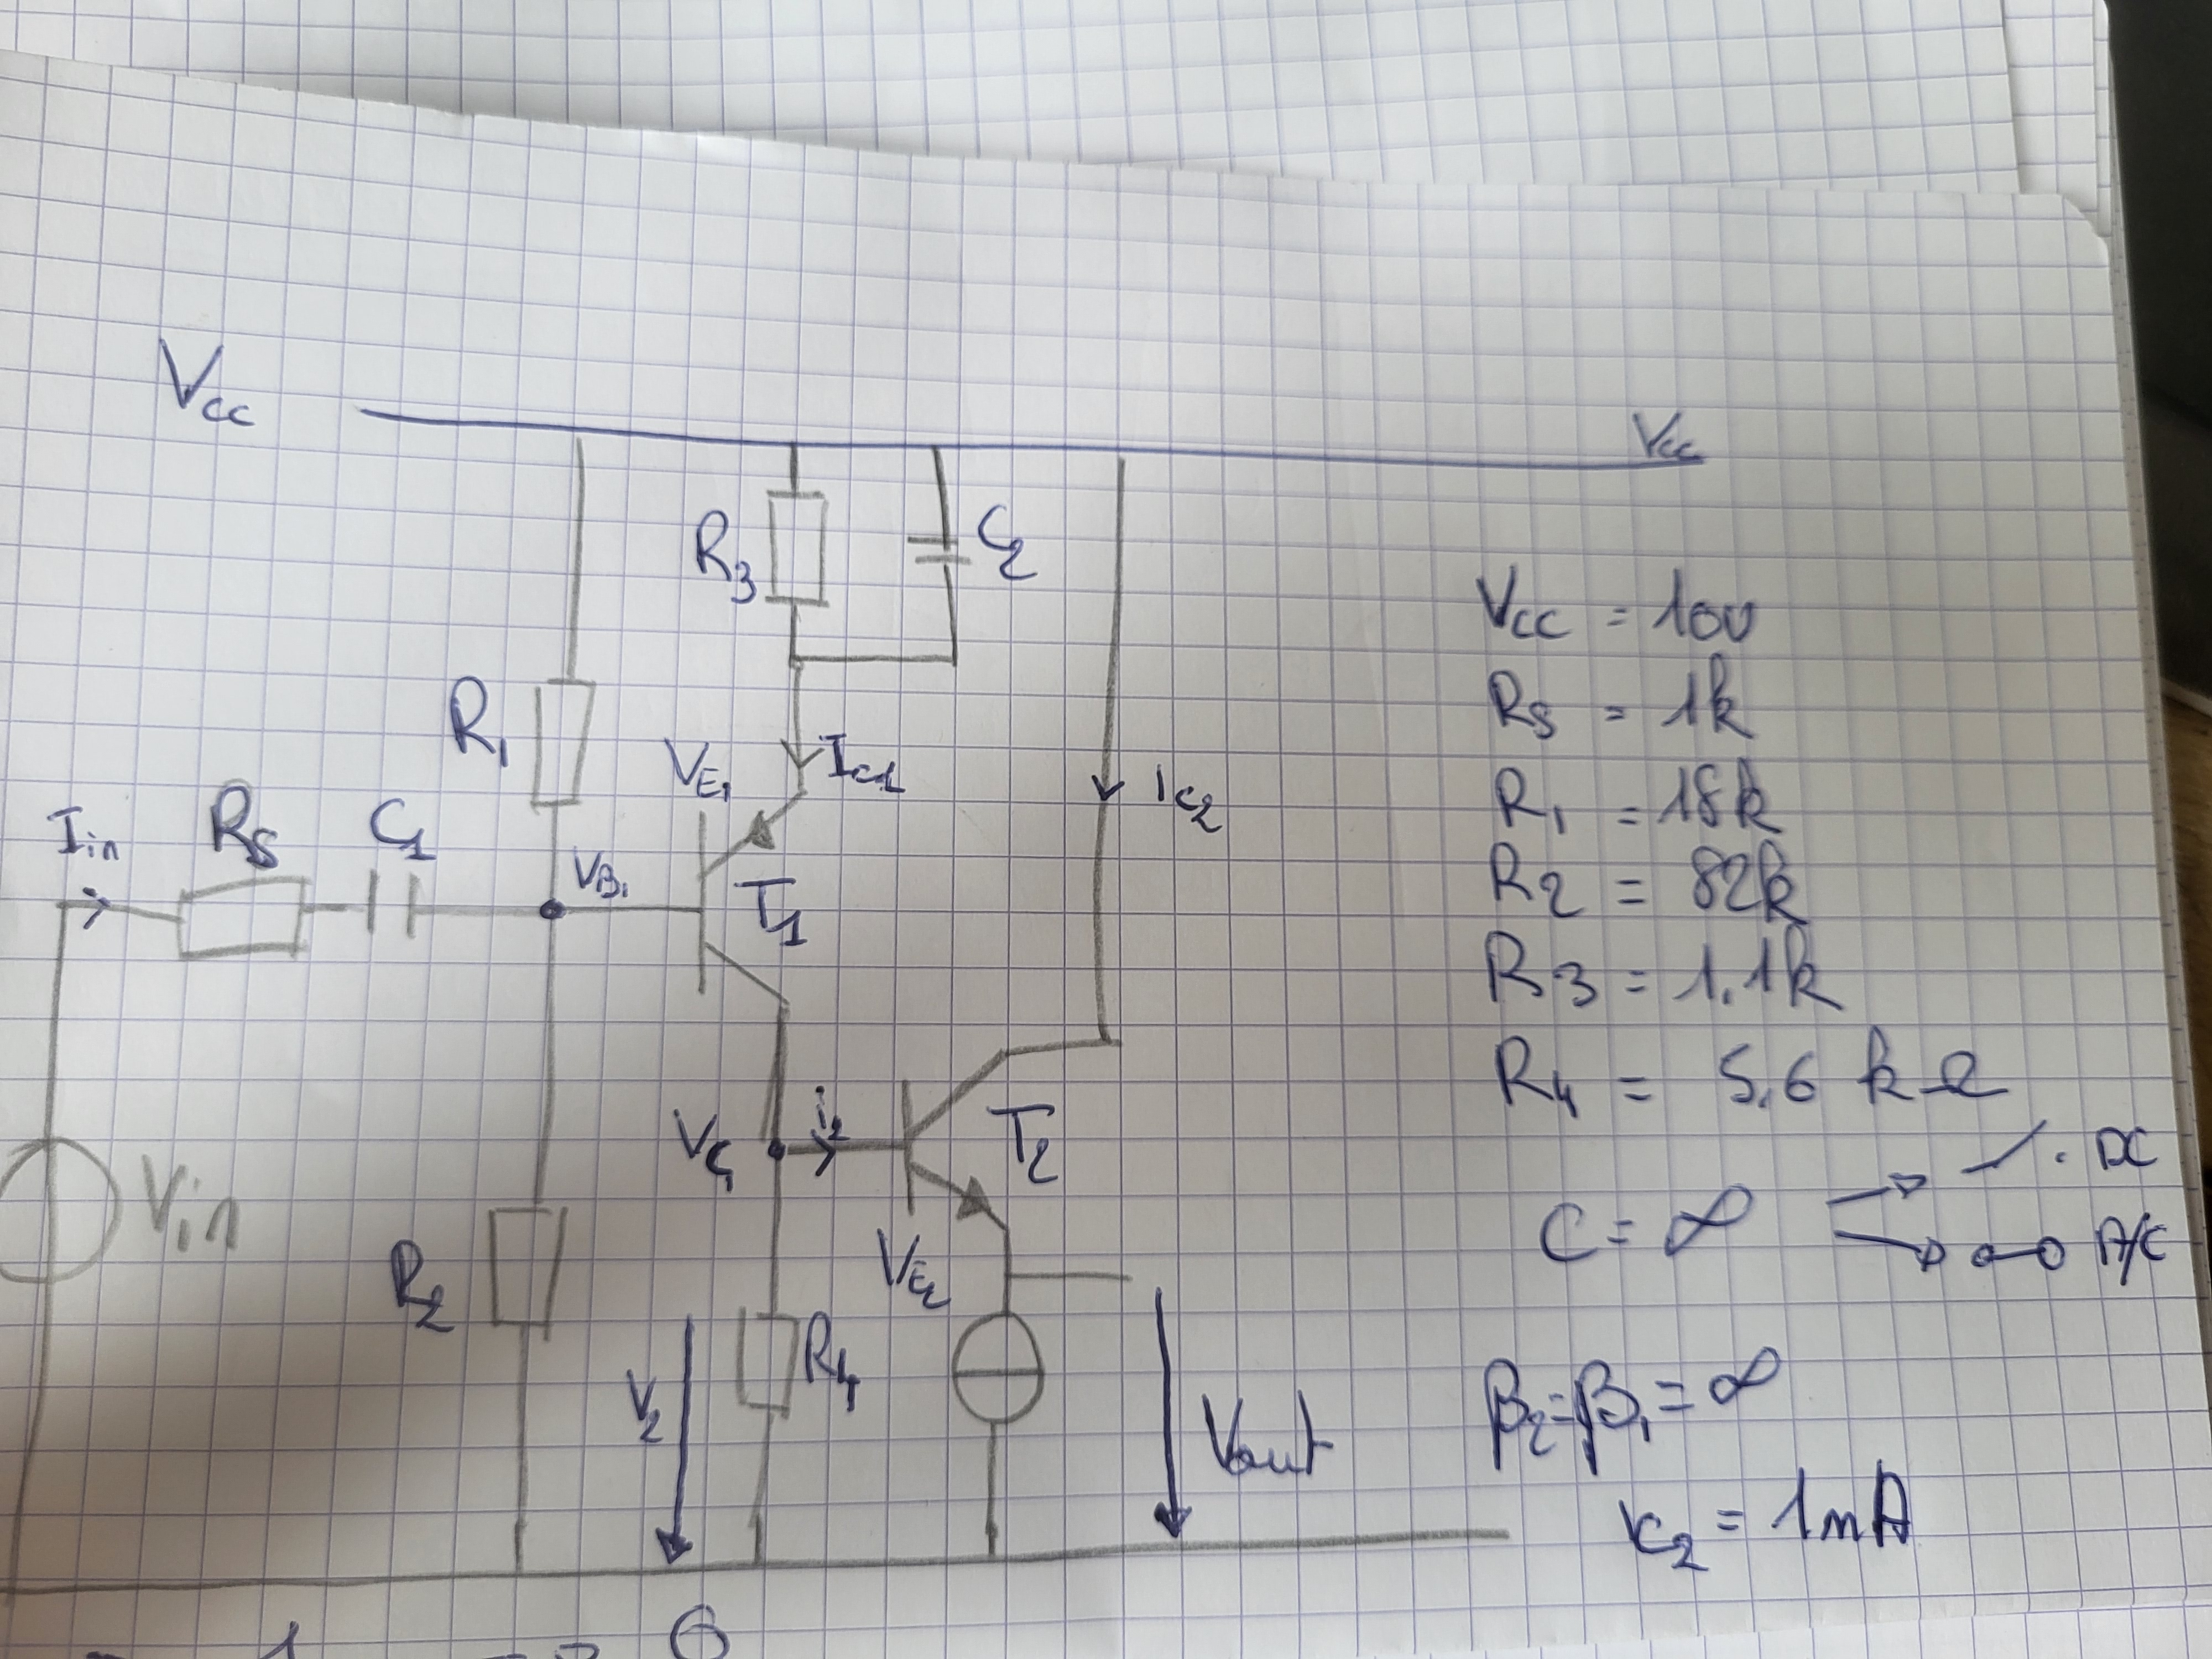 Vcc
Vcc
R3
C2
R1
VE1
Ic1
ic2
Iin
RS
C1
VB1
T1
Vin
R2
VC1
i2
T2
VE2
V2
R4
Vout
Vcc = 10V
RS = 1k
R1 = 18k
R2 = 82k
R3 = 1.1k
R4 = 5,6 kΩ
C = ∞
DC
A/C
β2 = β1 = ∞
ic2 = 1mA